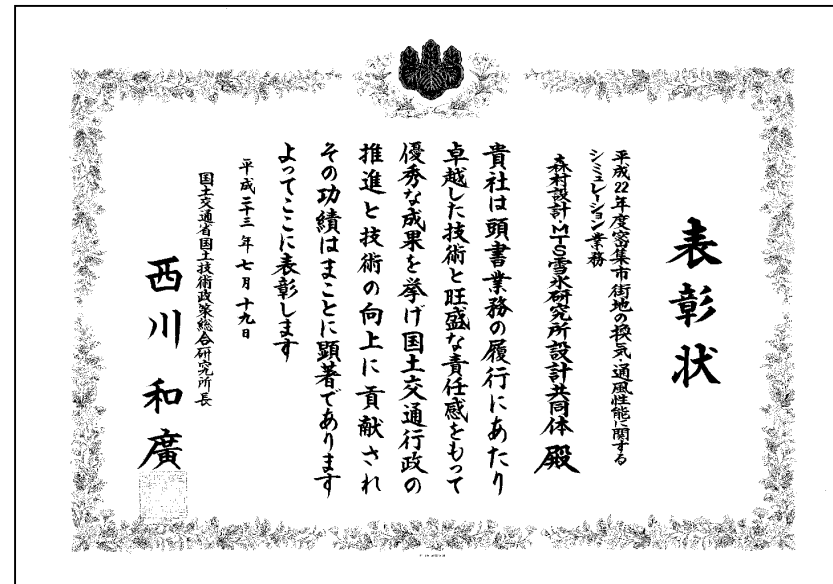 表彰状
平成22年度密集市街地の換気・通風性能に関する
シミュレーション業務
森村設計・MTS雪氷研究所設計共同体 殿
貴社は頭書業務の履行にあたり
卓越した技術と旺盛な責任感をもって
優秀な成果を挙げ国土交通行政の
推進と技術の向上に貢献され
その功績はまことに顕著であります
よってここに表彰します
平成二十三年七月十九日
国土交通省国土技術政策総合研究所長
西川和廣